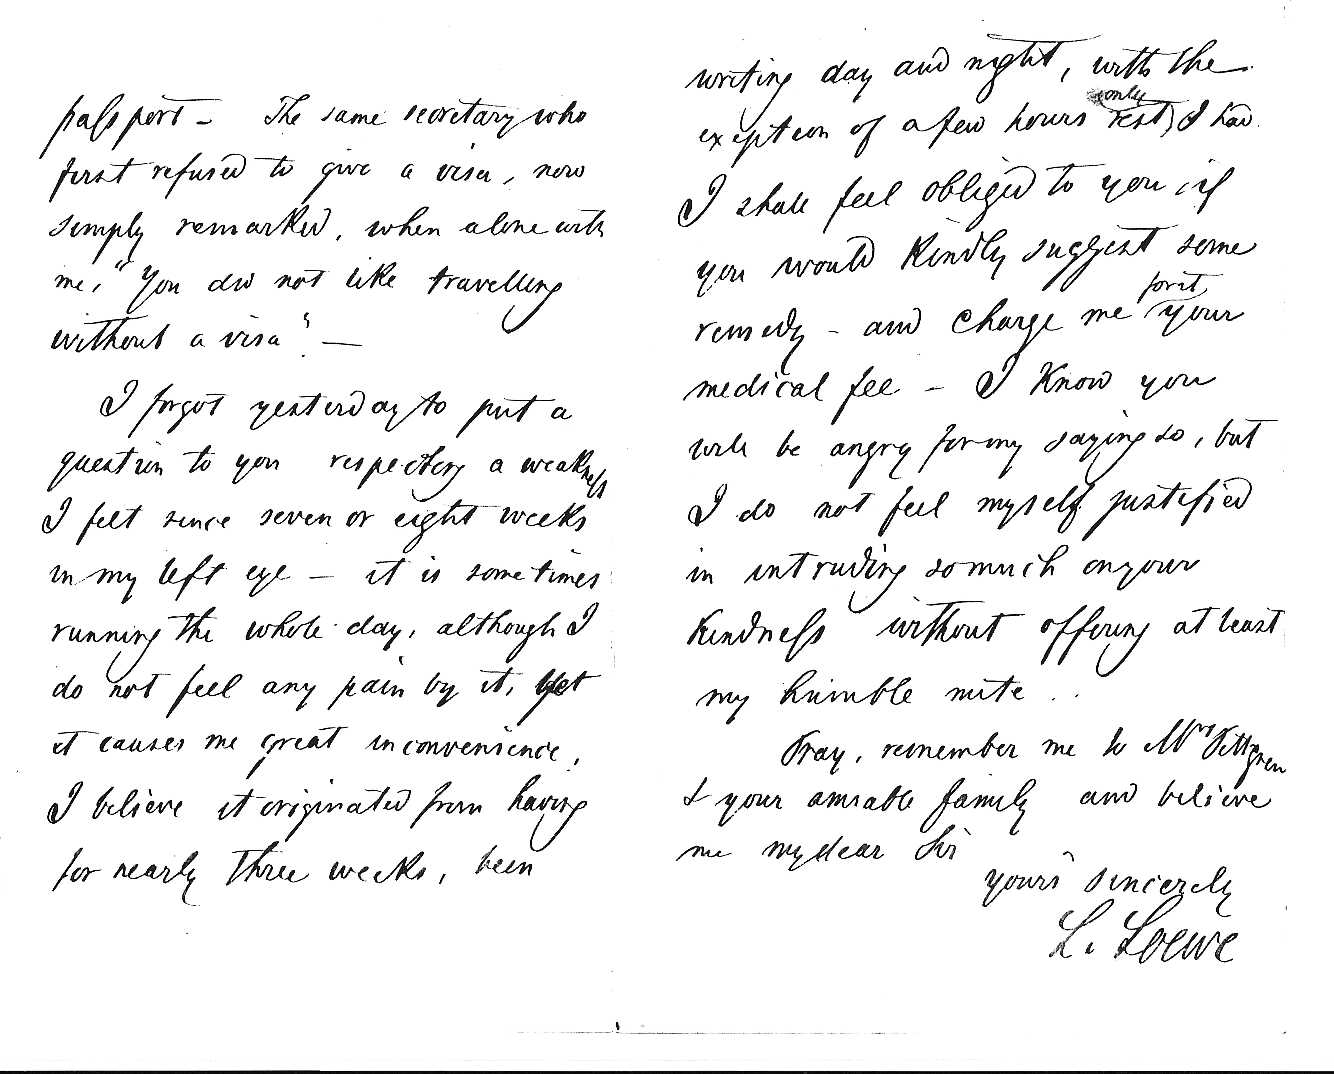 passport – The same secretary who
first refused to give a visa, now
simply remarked, when alone with
me, "You did not like travelling
without a visa" —
I forgot yesterday to put a
question to you respecting a weakness
I felt since seven or eight weeks
in my left eye – it is sometimes
running the whole day, although I
do not feel any pain by it, yet
it causes me great inconvenience,
I believe it originated from having
for nearly three weeks, been
writing day and night, with the
exeption of a few hours only rest, I had.
I shall feel obliged to you, if
you would kindly suggest some
remedy – and charge me for it your
medical fee – I know you
will be angry for my saying so, but
I do not feel myself justified
in intruding so much on your
kindness without offering at least
my humble mite..
Pray, remember me to Mrs
& your amiable family and believe
me my dear Sir
yours sincerely
L. Loewe